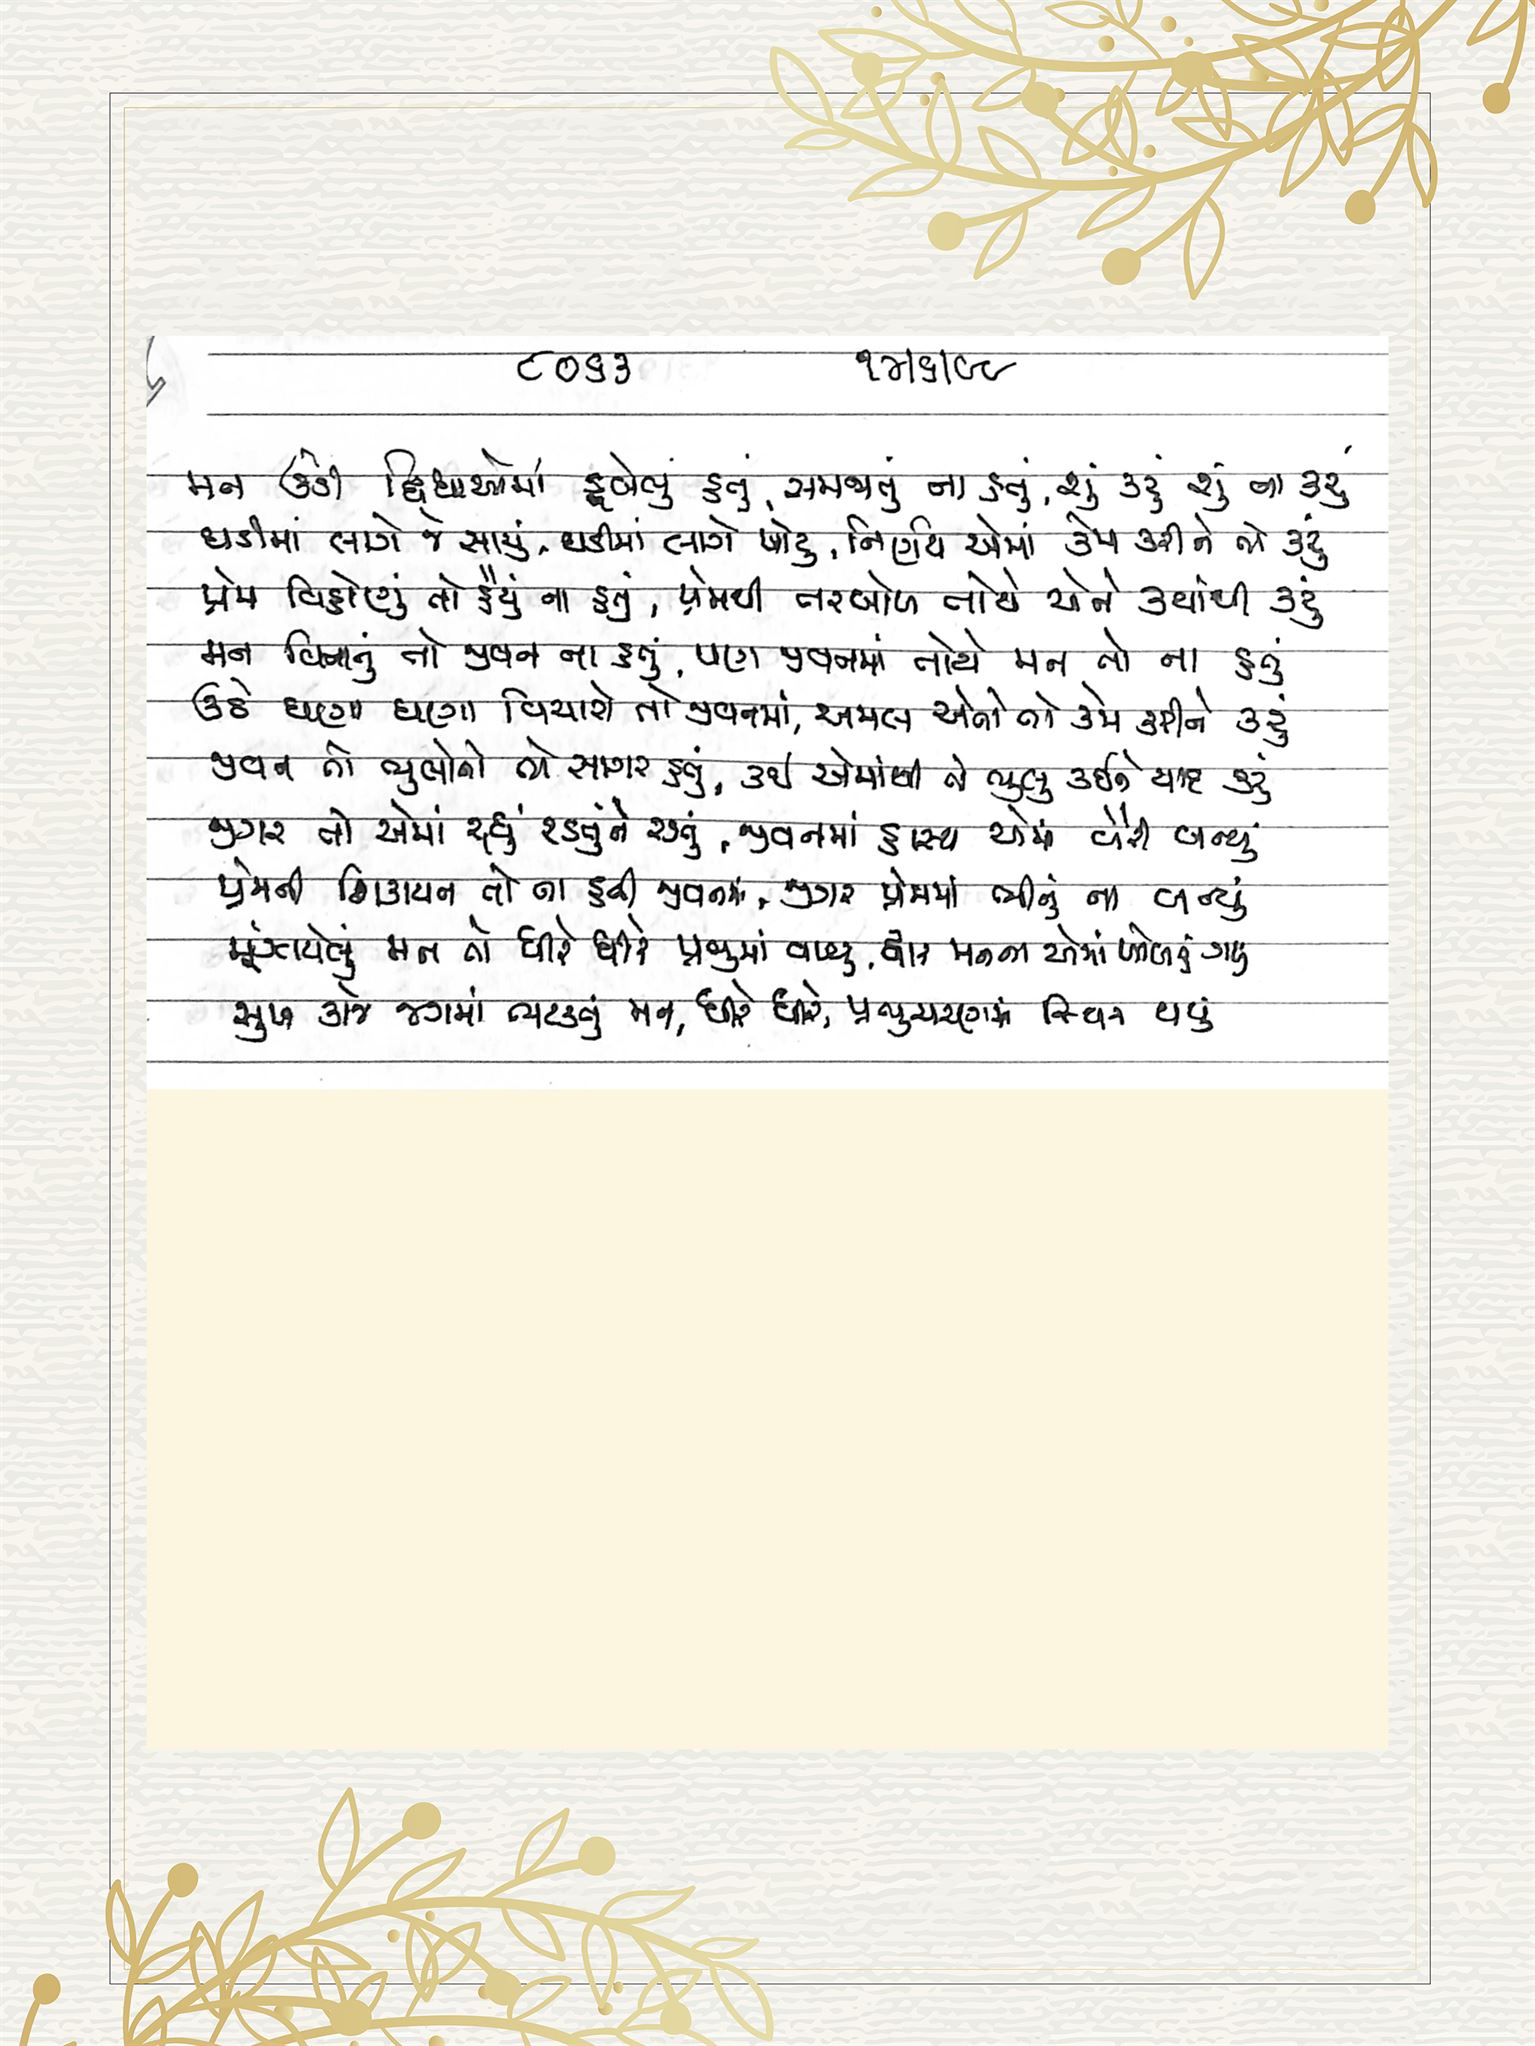 ૮૦૬૩ ૧૪/૬/૯૯
મન ઉંડી દ્વિધાઓમાં ડૂબેલું હતું, સમજાતું ના હતું, શું કરું શું ના કરું
ઘડીમાં લાગે જે સાચું, ઘડીમાં લાગે ખોટું, નિર્ણય એમાં કેમ કરીને તો કરું
પ્રેમ વિહોણું તો હૈયું ના હતું, પ્રેમથી તરબોળ તોયે એને ક્યાંથી કરું
મન વિનાનું તો જીવન ના હતું, પણ જીવનમાં તોયે મન તો ના હતું
ઉઠે ઘણા ઘણા વિચારો તો જીવનમાં, અમલ એનો તો કેમ કરીને કરું
જીવન તો ભુલોનો તો સાગર હતું, કઈ એમાંથી તો ભુલુ કઈને યાદ કરું
જીગર તો એમાં રહ્યું રડતુંને રડતું, જીવનમાં હાસ્ય એમાં વૈરી બન્યું
પ્રેમની શિકાયત તો ના હતી જીવનમાં, જીગર પ્રેમમાં ભીનું ના બન્યું
મૂંઝાયેલું મન તો ધીરે ધીરે પ્રભુમાં વળ્યું, જોર મનના એમાં ગયું
સુખ કાજે જગમાં ભટકતું મન, ધીરે ધીરે, પ્રભુચરણમાં સ્થિર થયું